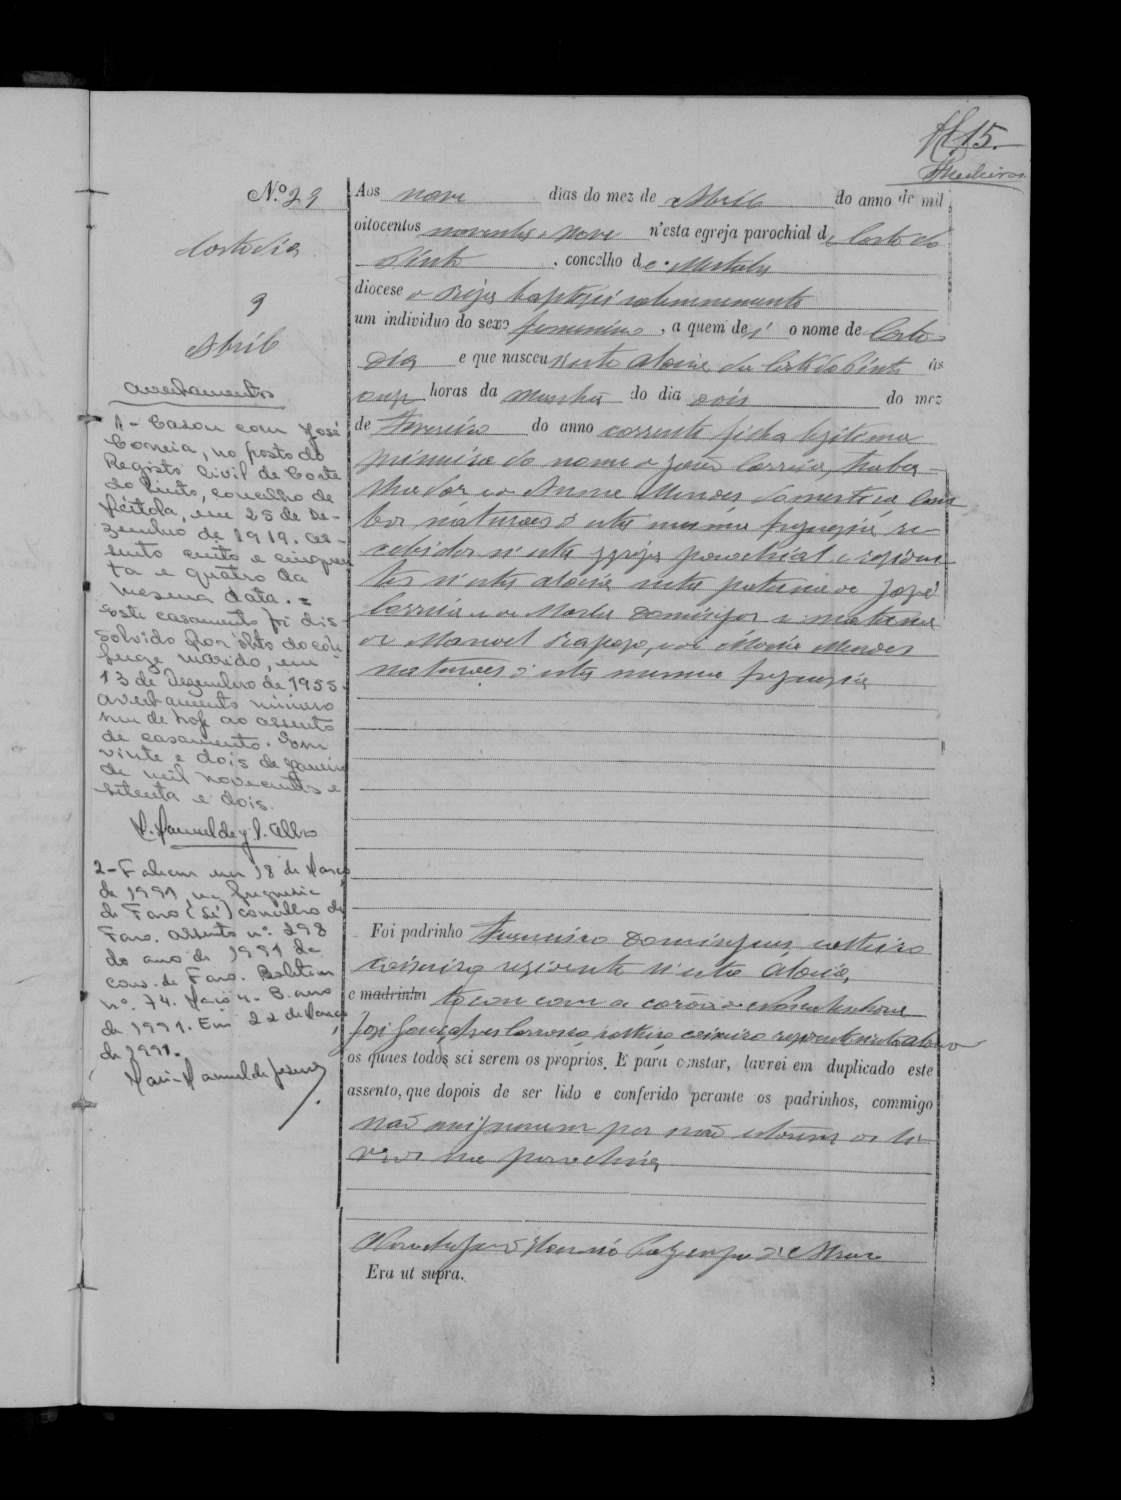 fl. 15.
Medeiros
N.º 29
Custodia
9
Abril
Averbamentos
1 - Casou com José
Correia, no posto do
Registo Civil de Corte
do Pinto, concelho de
Mértola, em 25 de De-
zembro de 1919. As-
sento cento e cinquen
ta e quatro da
mesma data. =
Este casamento foi dis-
solvido por óbito do côn-
juge marido, em
13 de Dezembro de 1955.
averbamento número
um de hoje ao assento
de casamento. Em
vinte e dois de Janeiro
de mil novecentos e
setenta e dois.
2 - Faleceu em 18 de Março
de 1991, na freguesia
de Faro (Sé) concelho de
Faro. Assento nº 298
do ano de 1991 da
cons. de Faro. Boletim
nº 74. Maio 4. B. ano
de 1991. Em 22 de Março
de 1991.
Maria Manuel de Jesus
Aos nove dias do mez de Abril do anno de mil
oitocentos noventa e nove n'esta egreja parochial de Corte do
Pinto, concelho de Mertola
diocese de Beja baptizei solemnemente
um individuo do sexo femenino, a quem dei o nome de Custo-
dia e que nasceu n'esta aldeia da Corte do Pinto ás
onze horas da manhã do dia dois do mez
de Fevereiro do anno corrente filha legitima
primeira do nome de João Correia, traba-
lhador e de Anna Mendes domestica
naturaes d'esta mesma freguezia, re-
cebidos n'esta Igreja parochial e residen-
tes n'esta aldeia neta paterna de José
Correia e de Maria Domingos e materna
de Manoel Raposo, e de Maria Mendes
naturaes d'esta mesma freguezia
Foi padrinho Francisco Domingues, solteiro
caixeiro rezidente n'esta Aldeia,
e madrinha tocou com a corôa de Nossa Senhora
José Gonçalves, solteiro caixeiro rezidente n'esta aldeia
os quaes todos sei serem os proprios. E para constar, lavrei em duplicado este
assento, que depois de ser lido e conferido perante os padrinhos, commigo
não assignaram por não estarem os li-
vros na parochia
O Parocho
Era ut supra.